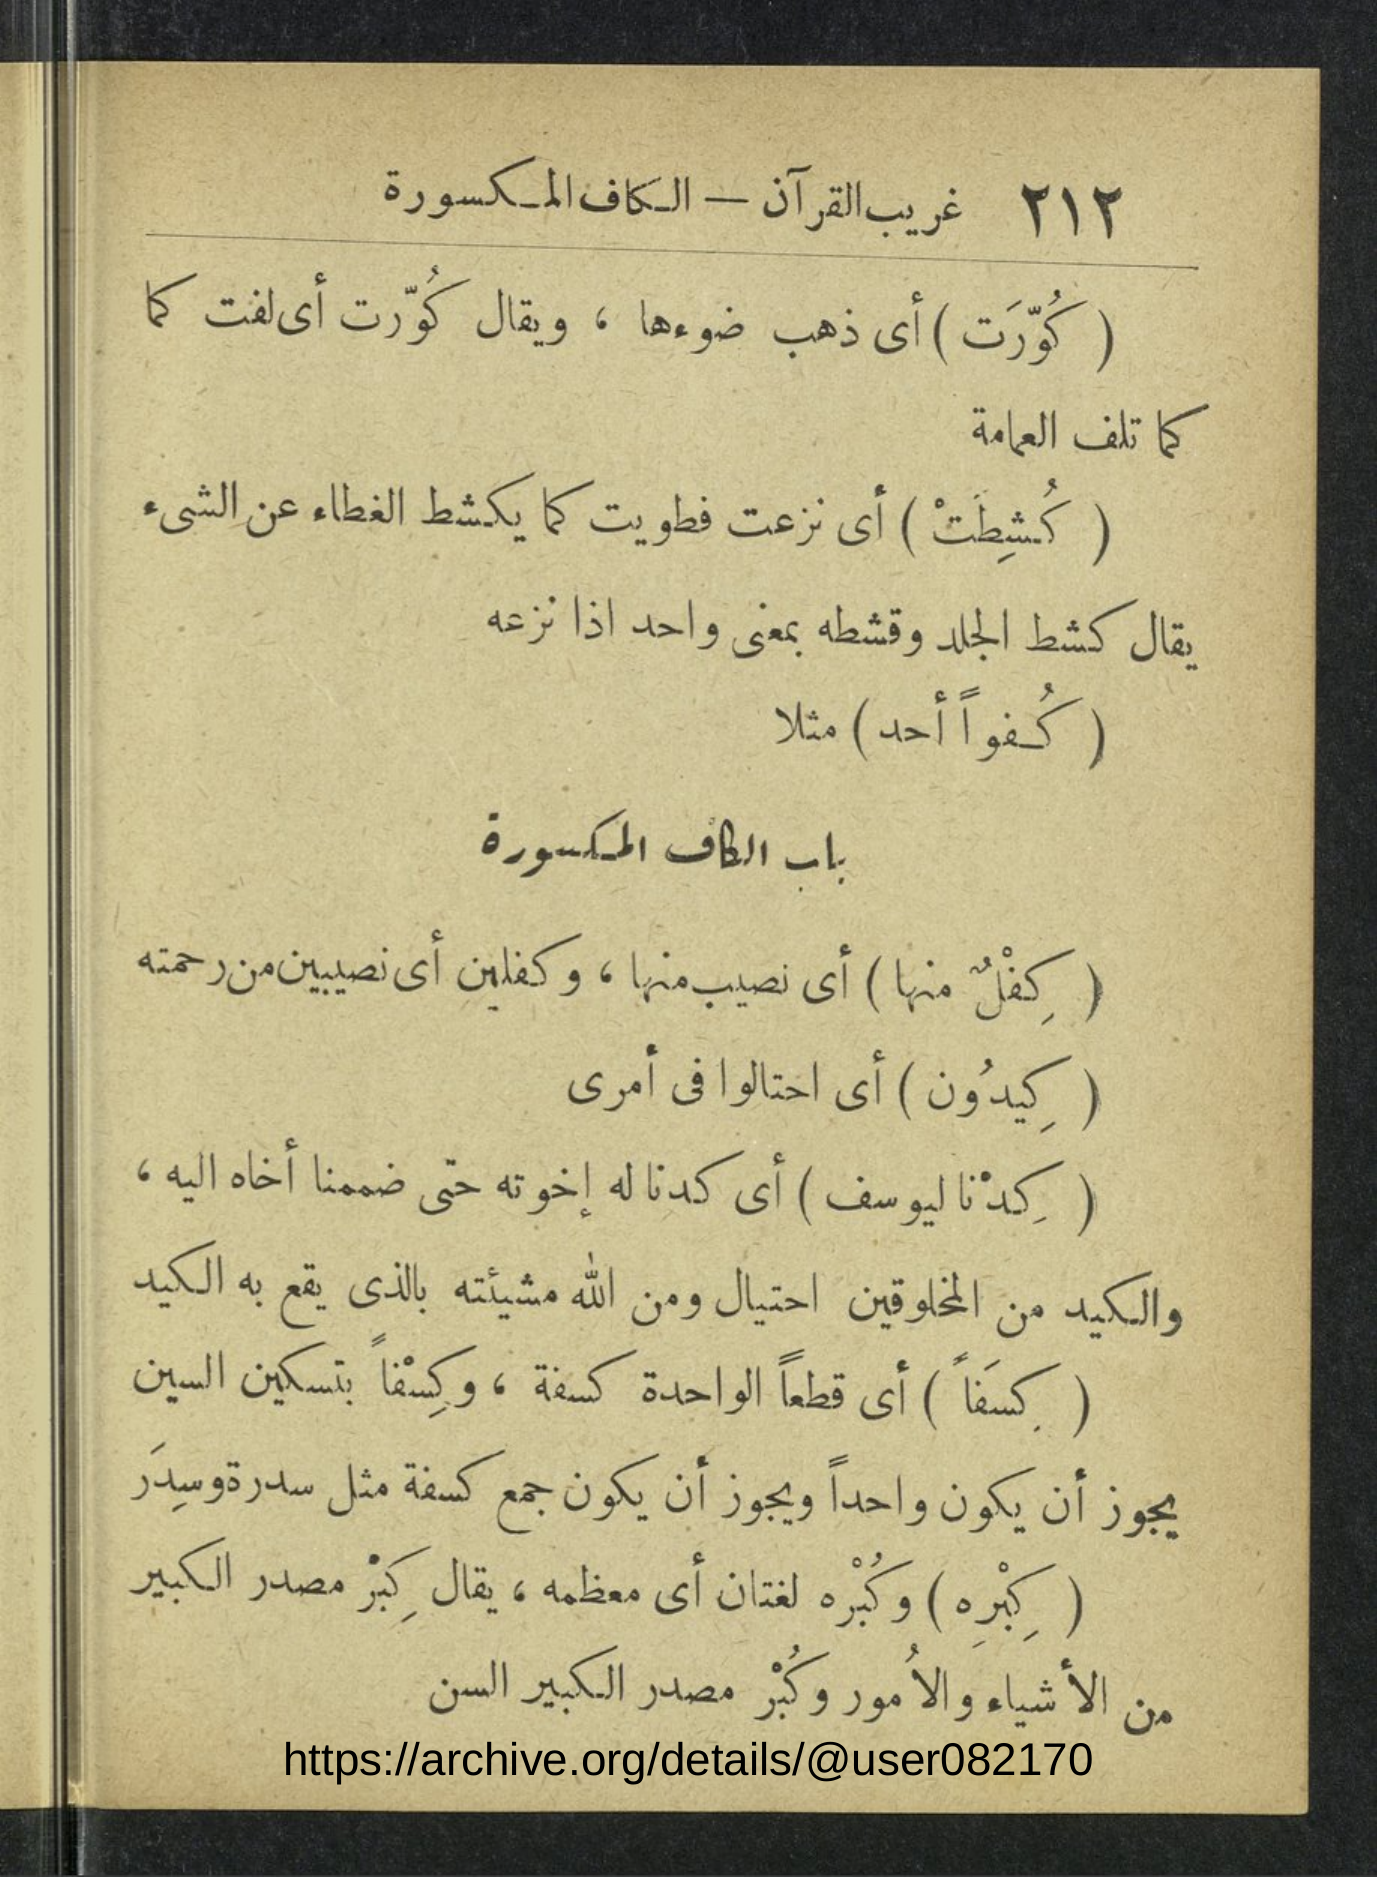 ٢١٢ غريب القرآن — الكاف المكسورة
( كُوِّرَت ) أى ذهب ضوءها ، ويقال كُوّرت أى لفت كما
كما تلف العمامة
( كُشِطَتْ ) أى نزعت فطويت كما يكشط الغطاء عن الشىء
يقال كشط الجلد وقشطه بمعنى واحد اذا نزعه
( كُفواً أحد ) مثلا
باب الكاف المكسورة
( كِفْلٌ منها ) أى نصيب منها ، وكفلين أى نصيبين من رحمته
( كِيدُون ) أى احتالوا فى أمرى
( كِدْنا ليوسف ) أى كدنا له إخوته حتى ضممنا أخاه اليه ،
والكيد من المخلوقين احتيال ومن الله مشيئته بالذى يقع به الكيد
( كِسَفاً ) أى قطعاً الواحدة كسفة ، وكِسْفاً بتسكين السين
يجوز أن يكون واحداً ويجوز أن يكون جمع كسفة مثل سدرة وسِدَر
( كِبْرِه ) وكُبْرْه لغتان أى معظمه ، يقال كِبْرْ مصدر الكبير
من الأشياء والاُمور وكُبْرْ مصدر الكبير السن
https://archive.org/details/@user082170